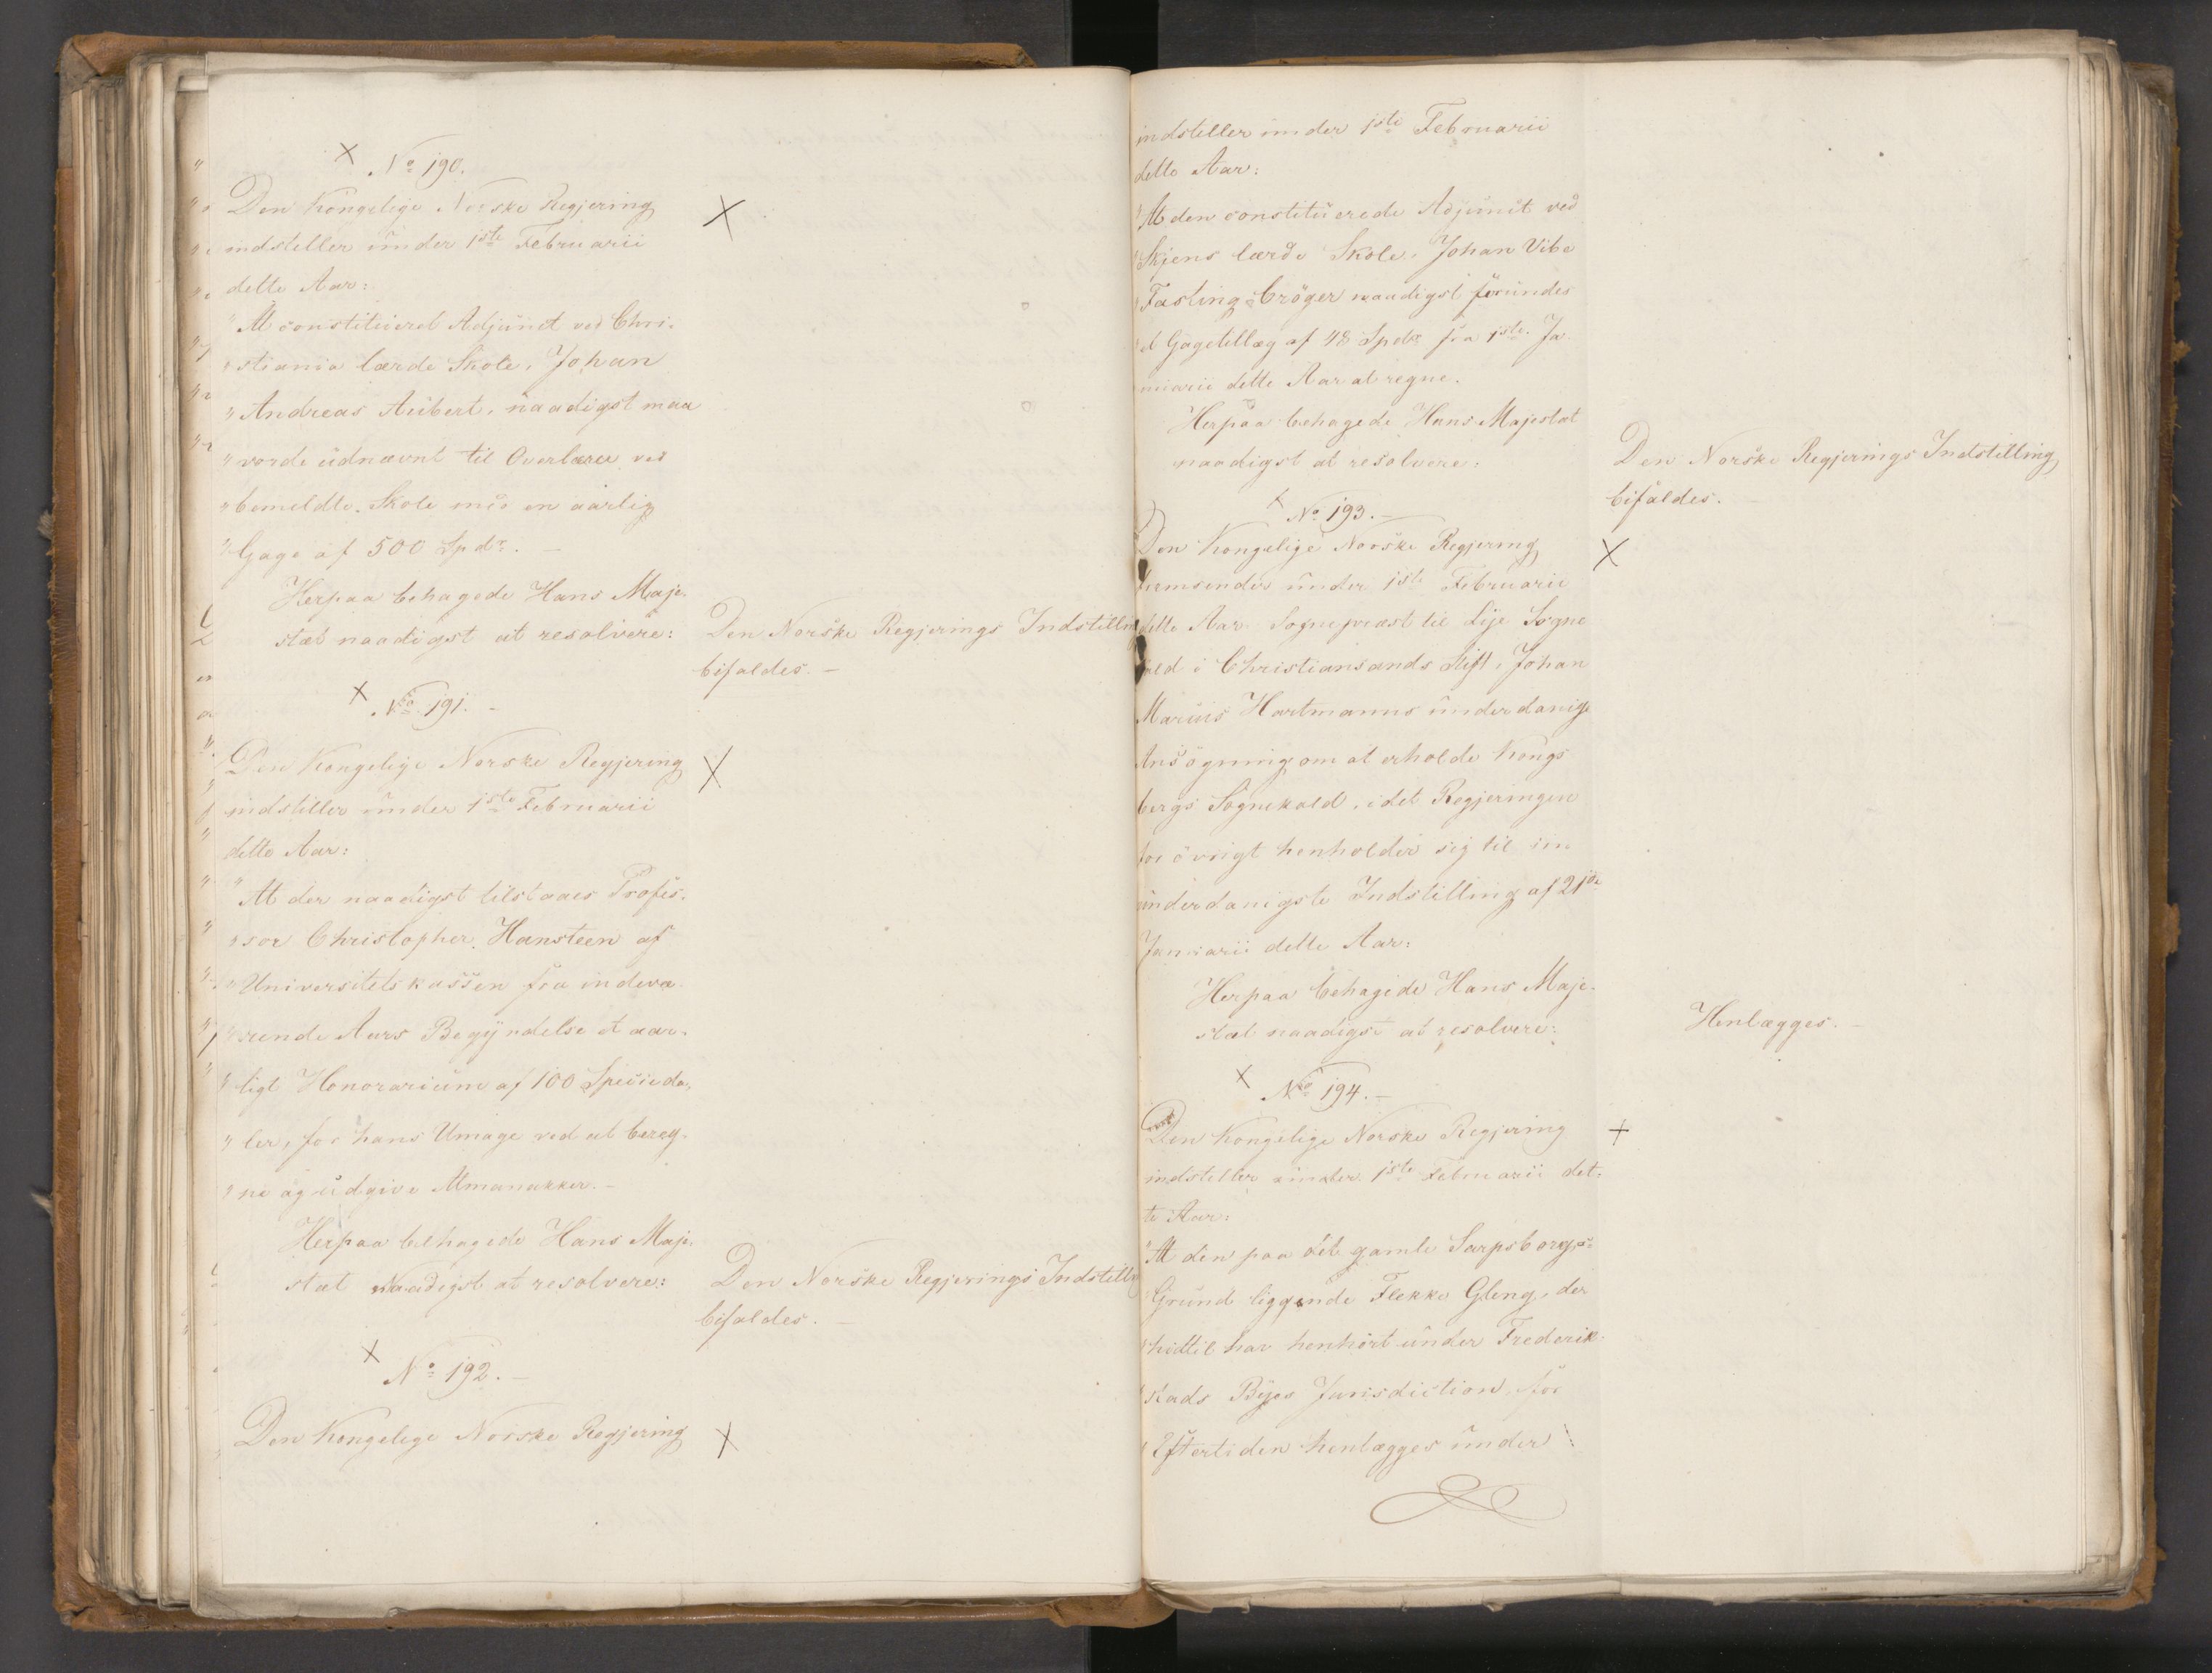 No 190.
Den Kongelige Norske Regjering
indstiller under 1ste Februarii
dette Aar:
"At constitueret Adjunct ved Chri-
"stiania lærde Skole, Johan
"Andreas Aubert, naadigst maa
"vorde udnævnt til Overlærer ved
"bemeldte Skole med en aarlig
"Gage af 500 Spdr. -
Herpaa behagede Hans Maje-
stæt naadigst at resolvere:
Den Norske Regjerings Indstilling
bifaldes. -
No 191. -
Den Kongelige Norske Regjering
indstiller under 1ste Februarii
dette Aar:
"At der naadigst tilstaaes Profes-
"sor Christopher Hansteen af
"Universitetskassen fra indevæ-
"rende Aars Begyndelse et aar-
"ligt Honorarium af 100 Speciesda-
"ler, for hans Umage ved at bereg-
"ne og udgive Almanakker. -
Herpaa behagede Hans Maje-
stæt Naadigst at resolvere:
Den Norske Regjerings Indstilling
bifaldes. -
No 192. -
Den Kongelige Norske Regjering
indstiller under 1ste Februarii
dette Aar:
"At den constituerede Adjunct ved
"Skjens lærde Skole, Johan Vibe
"Fasting Cröger naadigst forundes
"et Gagetillæg af 48 Spdr fra 1ste Ja-
nuarii dette Aar at regne.
Herpaa behagede Hans Majestæt
naadigst at resolvere:
Den Norske Regjerings Indstilling
bifaldes.
No 193. -
Den Kongelige Norske Regjering
fremsender under 1ste Februarii
dette Aar Sognepræst til Lye Sogne
kald i Christiansands Stift, Johan
Marius Hartmanns underdanige
Ansögning om at erholde Kongs
bergs Sognekald, idet Regjeringen
for övrigt henholder sig til sin
underdanigste Indstilling af 21de
Januarii dette Aar:
Herpaa behagede Hans Maje-
stæt naadigst at resolvere:
Henlægges. -
No 194. -
Den Kongelige Norske Regjering
indstiller under 1ste Februarii det-
te Aar:
"At den paa det gamle Sarpsborgs
"Grund liggende Flekke Gleng, der
"hidtil har henhört under Frederik-
"stads Byes Jurisdiction, for
"Eftertiden henlægges under